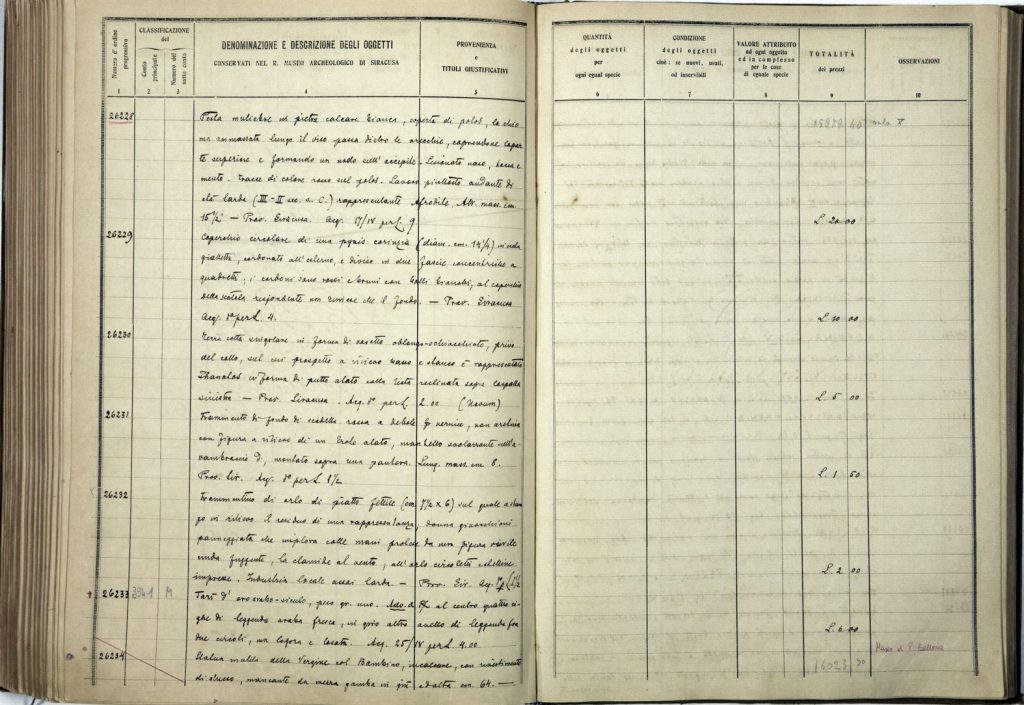 Numero d'ordine progressivo
CLASSIFICAZIONE del
Conto principale
Numero del sotto conto
DENOMINAZIONE E DESCRIZIONE DEGLI OGGETTI
CONSERVATI NEL R. MUSEO ARCHEOLOGICO DI SIRACUSA
PROVENIENZA
e
TITOLI GIUSTIFICATIVI
1 2 3 4 5
26228 Testa muliebre in pietra calcare bianca, coperta di polos, la chio
ma ammassata lungo il viso passa dietro le orecchie, coprendone la par
te superiore e formando un nodo sull'occipite. Lesionato naso, bocca e
mento. Tracce di colore rosso sul polos. Lavoro piuttosto andante di
età tarda (III-II sec. a. C.) rappresentante Afrodite. Alt. mass. cm.
15 1/2 — Prov. Siracusa. Acq. 17/IV per L. 9
26229 Coperchio circolare di una pyxis corinzia (diam. cm. 14 1/4)
gialletta, carbonato all'esterno, e diviso in due fascie concentriche a
quadretti; i carboni sono rossi e bruni con
della scatola rispondente non rimane che il fondo. — Prov. Siracusa
Acq. d° per L. 4.
26230 Terra cotta singolare in forma di vasetto oblungo-schiacciato, privo
del collo, sul cui prospetto a rilievo basso e stanco è rappresentato
Thanatos in forma di putto alato colla testa reclinata sopra la spalla
sinistra — Prov. Siracusa. Acq. d° per L. 2.00 (Naxum)
26231 Frammento di fondo di scodella rossa a debole vernice, non aretina
con figura a rilievo di un Erote alato, mantello svolazzante sull'a
vambraccio d., montato sopra una pantera. Lung. mass. cm. 8.
Prov. Sir. Acq. d° per L. 1 1/2
26232 Frammentino di orlo di piatto fittile (cm. 7 1/2 x 6) sul quale a stam
po in rilievo il residuo di una rappresentanza, donna ginocchioni
panneggiata che implora colle mani protese da una figura virile
nuda fuggente, la clamide al vento, all'orlo circoletti
impresse. Industria locale assai tarda. — Prov. Sir. Acq. 1 1/2
26233 3941 M Tarì d'oro arabo-siculo, peso gr. uno. al centro quattro ri
ghe di leggenda araba fresca, in giro altro anello di leggenda fra
due circoli, un logora e tosata. Acq. 25/IV per L. 4.00
26234 Statua mutila della Vergine col Bambino, in calcare, con rivestimento
di stucco, mancante da mezza gamba in giù ed alta cm. 64. —
QUANTITÀ
degli oggetti
per
ogni egual specie
CONDIZIONE
degli oggetti
cioè: se nuovi, usati,
od inservibili
VALORE ATTRIBUITO
ad ogni oggetto
ed in complesso
per le cose
di eguale specie
TOTALITÀ
dei prezzi
OSSERVAZIONI
6 7 8 9 10
15978 40 sala X
L. 20 00
L. 20 00
L. 5 00
L. 1 50
L. 2 00
L. 6 00
Museo di P. Bellomo
16023 90